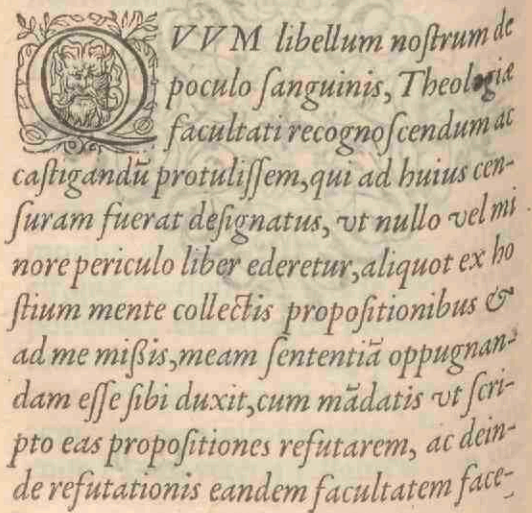 QVVM libellum noſtrum de
poculo ſanguinis, Theologiæ
facultati recognoſcendum ac
caſtigandū protuliſſem, qui ad huius cen-
ſuram fuerat deſignatus, vt nullo vel mi
nore periculo liber ederetur, aliquot ex ho
ſtium mente collectis propoſitionibus &
ad me mißis, meam ſententiā oppugnan-
dam eſſe ſibi duxit, cum mādatis vt ſcri-
pto eas propoſitiones refutarem, ac dein-
de refutationis eandem facultatem face-